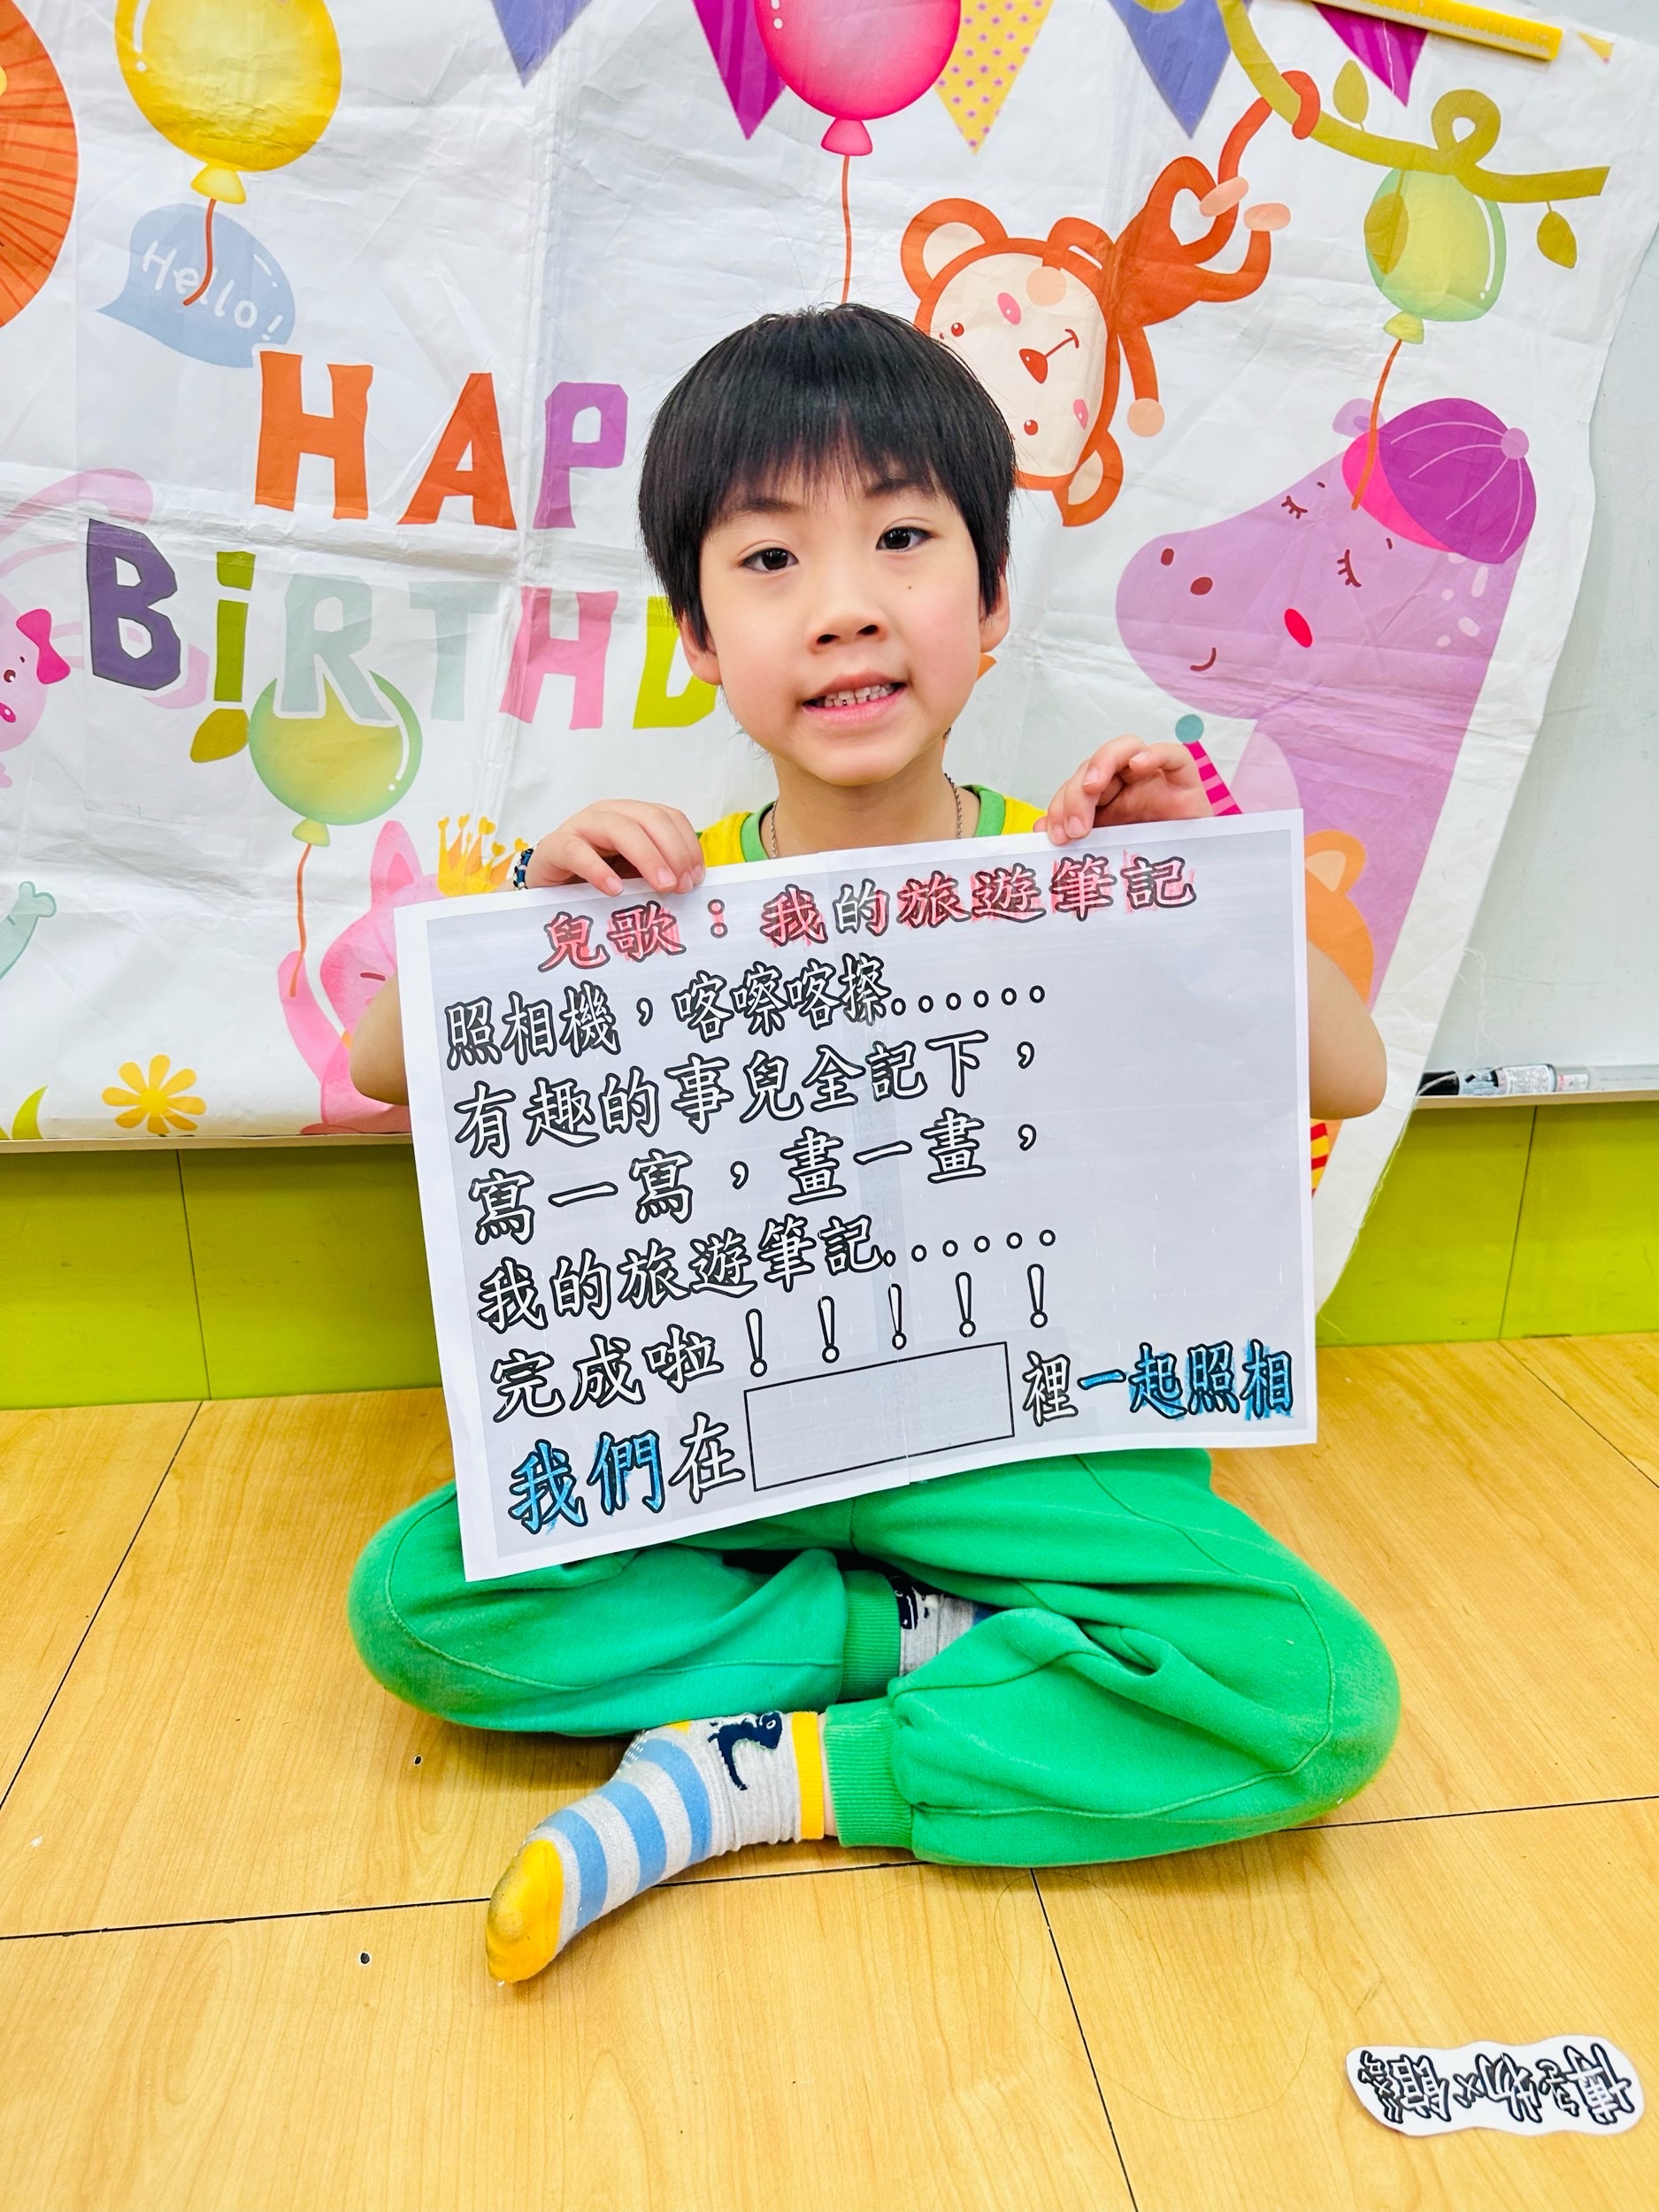 Hello!
HAP
BiRTHD
兒歌：我的旅遊筆記
照相機，喀嚓喀擦......
有趣的事兒全記下，
寫一寫，畫一畫，
我的旅遊筆記......
完成啦！！！！！
我們在 裡一起照相
博物館